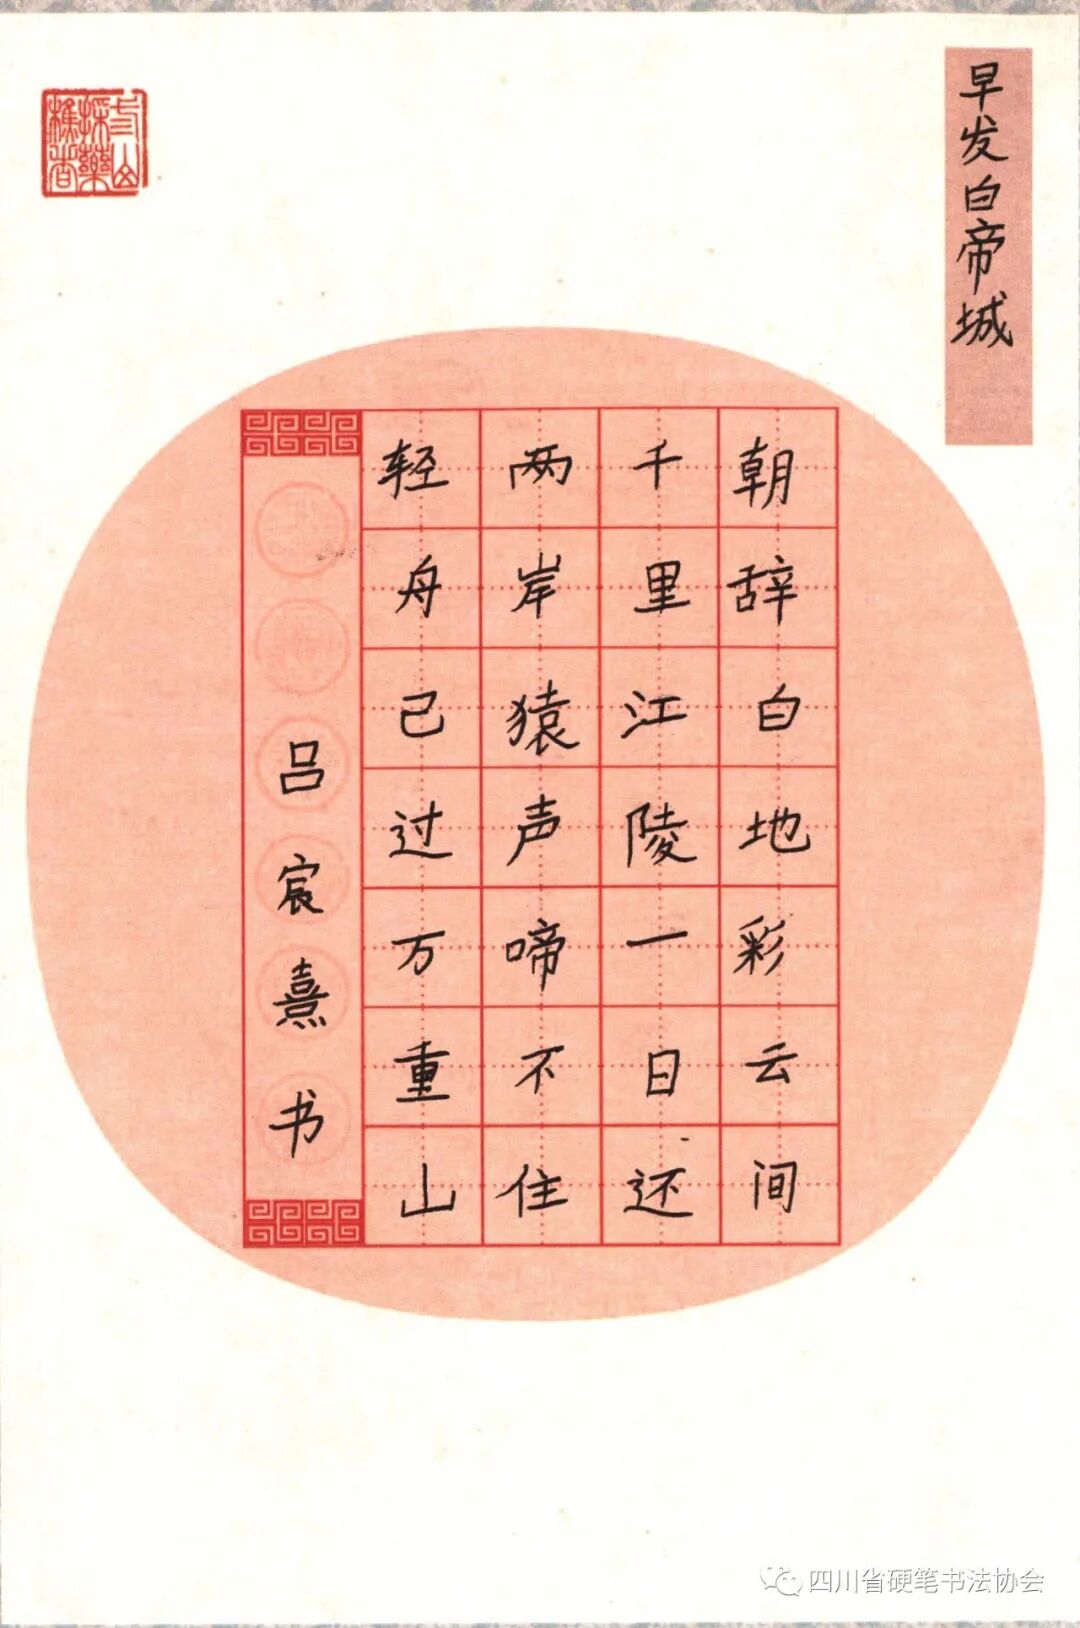 早发白帝城
朝辞白地彩云间
千里江陵一日还
两岸猿声啼不住
轻舟己过万重山
吕宸熹书
四川省硬笔书法协会